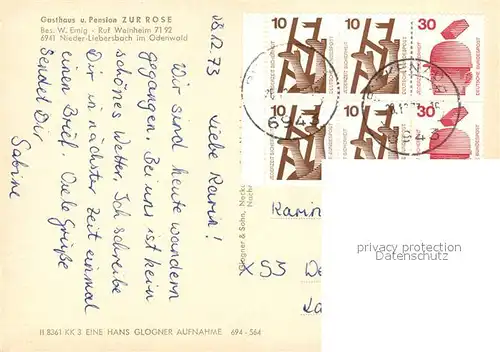 Gasthaus u. Pension ZUR ROSE
Bes. W. Emig - Ruf Weinheim 71 92
6941 Nieder-Liebersbach im Odenwald
08.12.73
Liebe Karin!
Wir sind heute wandern
gegangen. Bei uns ist kein
schönes Wetter. Ich schreibe
Dir in nächster Zeit einmal
einen Brief. Viele Grüße
sendet Dir
Sabine
II 8361 KK 3 EINE HANS GLOGNER AUFNAHME 694 - 564
Glogner & Sohn, Necka
10
10
30
JEDERZEIT SICHERHEIT
DEUTSCHE BUNDESPOST
10
10
30
6943
6943
Karin
X 53 We
privacy protection
Datenschutz